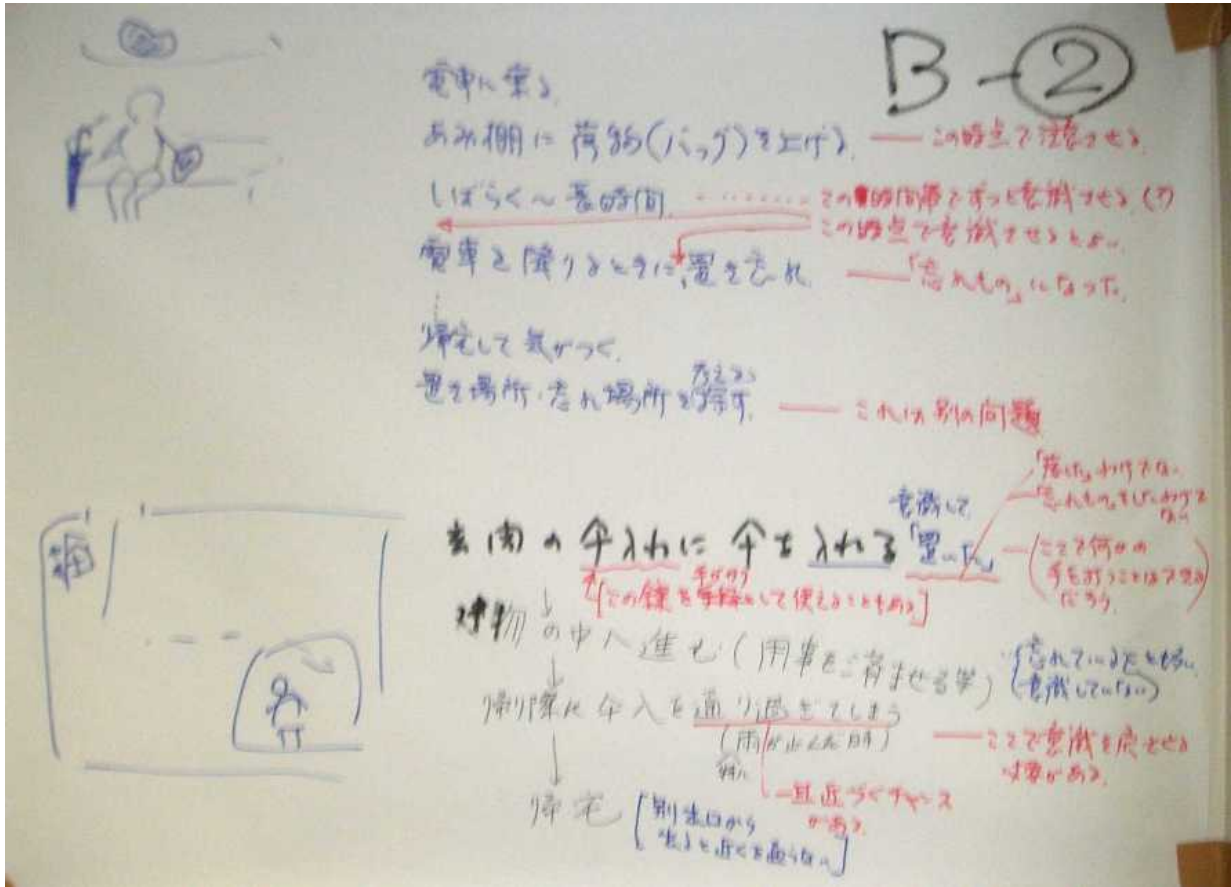 B-②
電車に乗る
あみ棚に荷物(バッグ)を上げる ── この時点で注意させる
しばらく〜長時間 ……… この時間帯でずっと意識させる(?)
この時点で意識させるとよい
電車を降りるときに、置き忘れ ── 「忘れもの」になった
帰宅して気がつく
考える
置き場所・忘れ場所を探す ── これは別の問題
「落した」わけでない
「忘れもの」をしたわけでない
意識して
玄関の傘入れに傘を入れる 「置いた」 (ここで何かの手を打つことはできるだろう)
手がかり
[この鍵を手段として使えることもある]
建物の中へ進む(用事を済ませる等) (忘れている
(意識していない)
帰り際に傘入を通り過ぎてしまう
(雨が止んだ日等) ── ここで意識を戻させる必要がある
特に
一旦近づくチャンスがある
帰宅 [別出口から出ると近くを通らない]